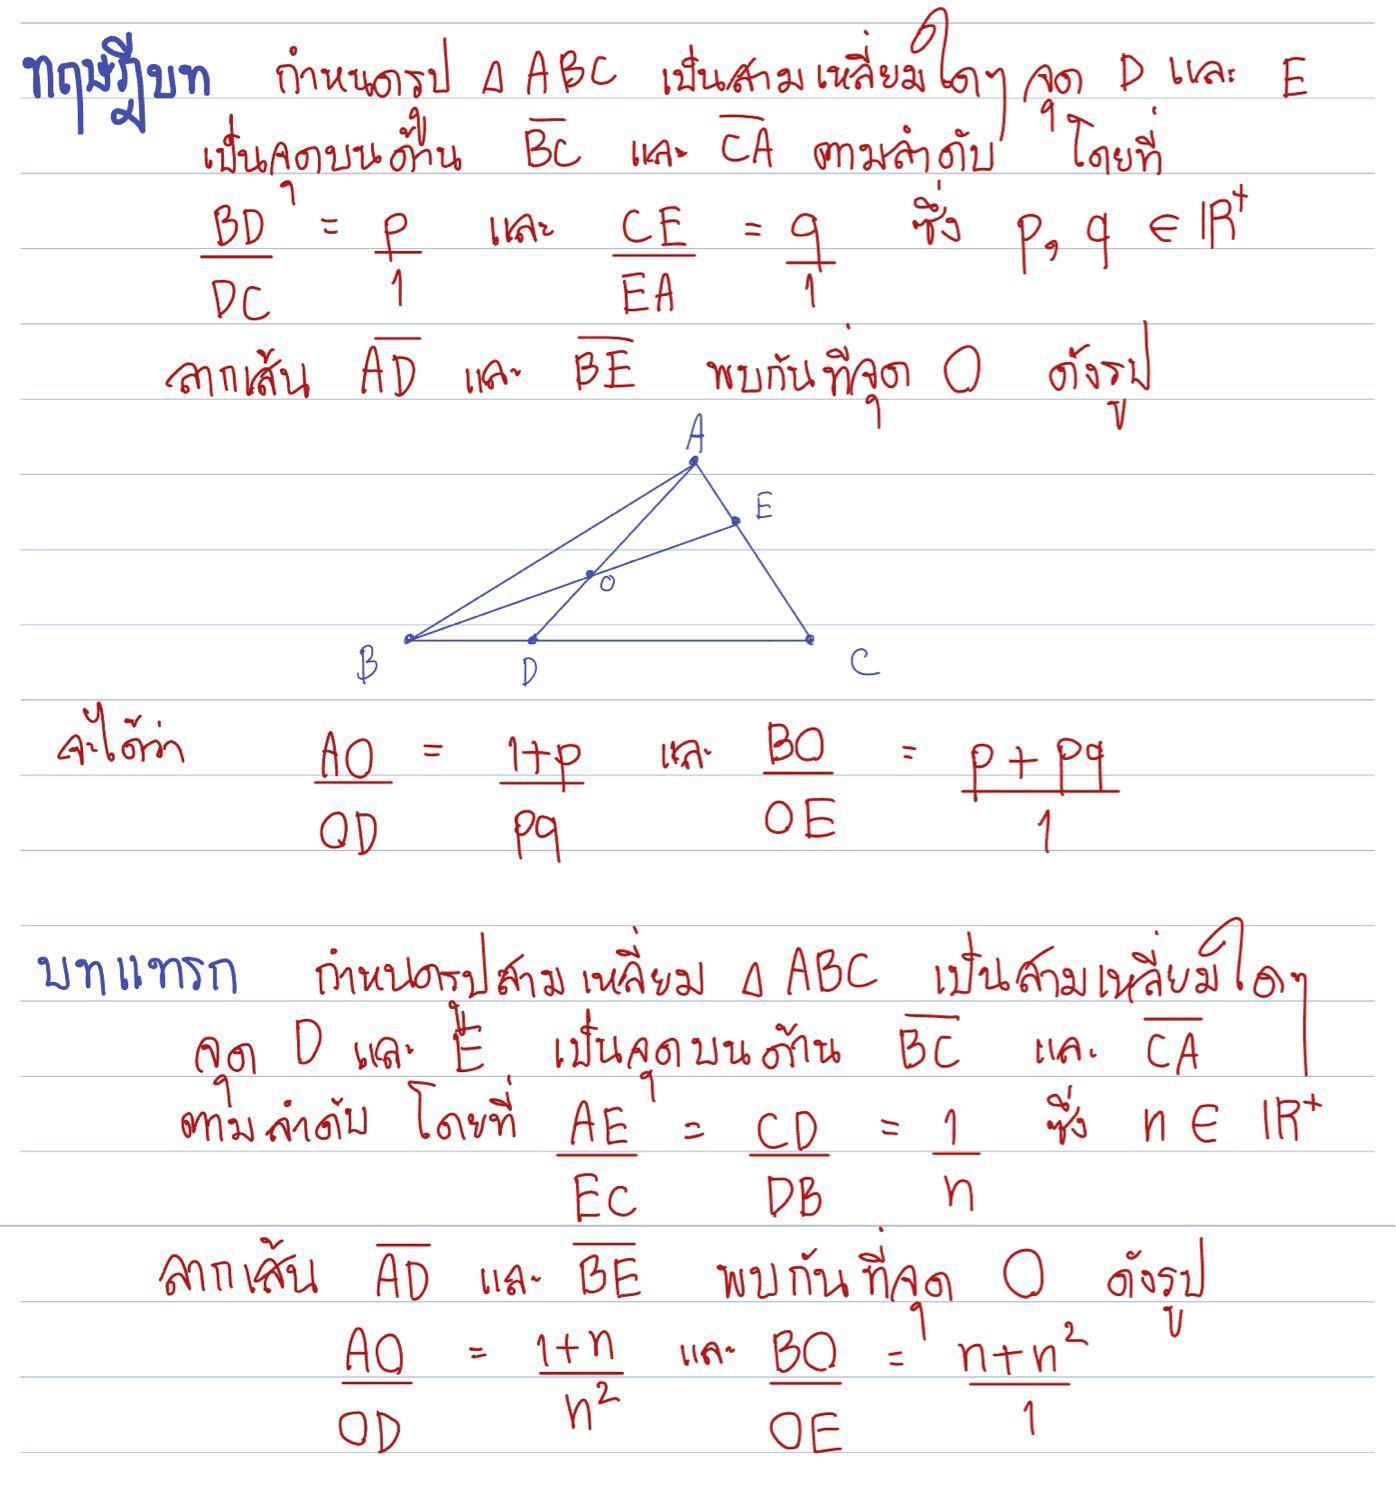 ทฤษฎีบท กำหนดรูป △ ABC เป็นสามเหลี่ยมใดๆ จุด D และ E
เป็นจุดบนด้าน \overline{BC} และ \overline{CA} ตามลำดับ โดยที่
\frac{BD}{DC} = \frac{p}{1} และ \frac{CE}{EA} = \frac{q}{1} ซึ่ง p, q ∈ ℝ⁺
ลากเส้น \overline{AD} และ \overline{BE} พบกันที่จุด O ดังรูป
A
E
O
B D C
จะได้ว่า \frac{AO}{OD} = \frac{1+p}{pq} และ \frac{BO}{OE} = \frac{p+pq}{1}
บทแทรก กำหนดรูปสามเหลี่ยม △ ABC เป็นสามเหลี่ยมใดๆ
จุด D และ E เป็นจุดบนด้าน \overline{BC} และ \overline{CA}
ตามลำดับ โดยที่ \frac{AE}{EC} = \frac{CD}{DB} = \frac{1}{n} ซึ่ง n ∈ ℝ⁺
ลากเส้น \overline{AD} และ \overline{BE} พบกันที่จุด O ดังรูป
\frac{AO}{OD} = \frac{1+n}{n²} และ \frac{BO}{OE} = \frac{n+n²}{1}